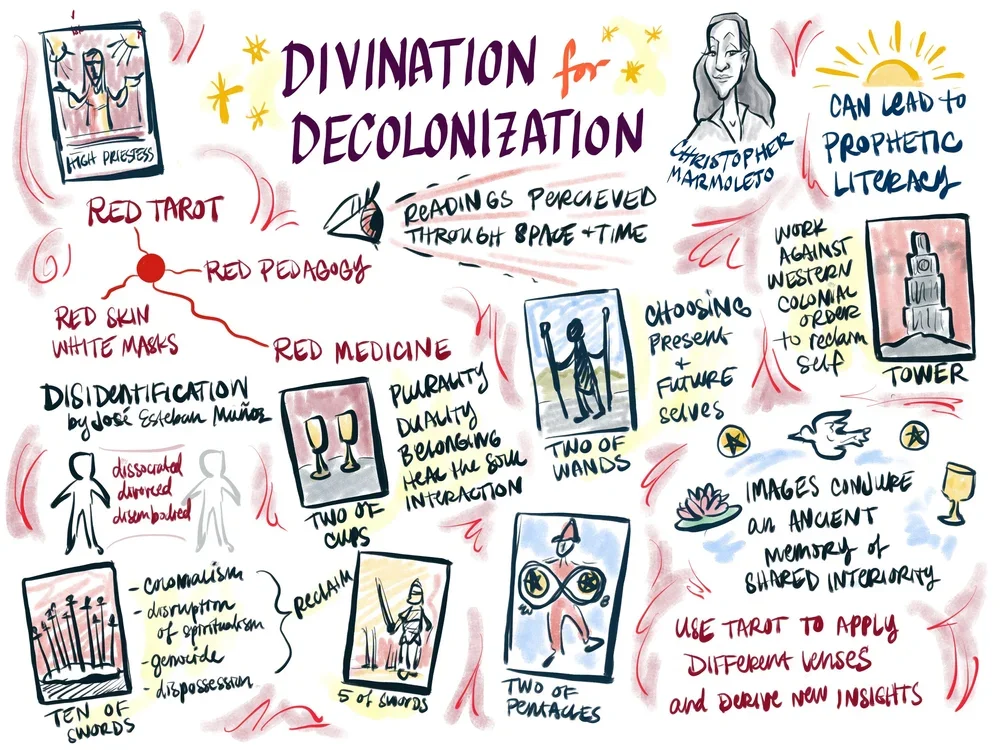 HIGH PRIESTESS
DIVINATION for
DECOLONIZATION
CHRISTOPHER
MARMOLEJO
CAN LEAD to
PROPHETIC
LITERACY
RED TAROT
RED PEDAGOGY
RED SKIN
WHITE MASKS
RED MEDICINE
READINGS PERCIEVED
THROUGH SPACE + TIME
WORK
AGAINST
WESTERN
COLONIAL
ORDER
to reclaim
self
TOWER
CHOOSING
Present
+
FUTURE
selves
TWO OF
WANDS
DISIDENTIFICATION
by José Esteban Muñoz
dissociated
divorced
disembodied
PLURALITY
DUALITY
BELONGING
HEAL the SOUL
INTERACTION
TWO OF
CUPS
IMAGES CONJURE
an ANCIENT
memory of
SHARED INTERIORITY
TEN OF
SWORDS
- colonialism
- disruption
of spiritualism
- genocide
- dispossession
RECLAIM
5 of SWORDS
TWO OF
PENTACLES
USE TAROT TO APPLY
DIFFERENT LENSES
and DERIVE NEW INSIGHTS